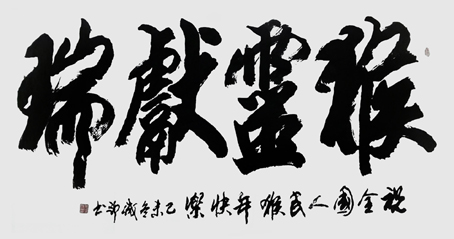 猴靈獻瑞
祝全國人民猴年快樂 乙未冬書